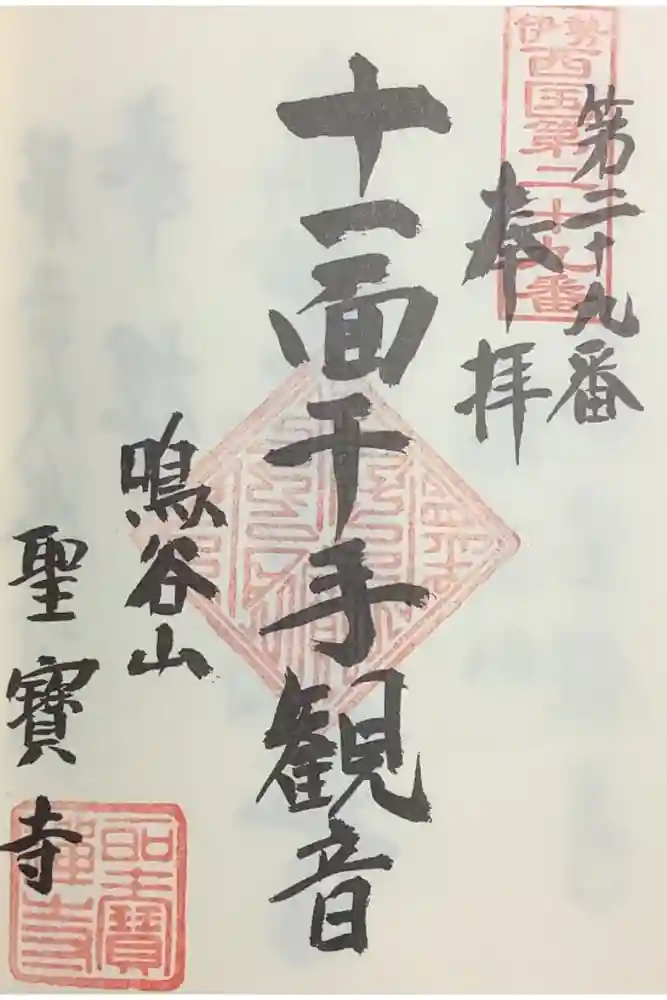 伊勢
西国第二十九番
第二十九番
奉拝
十一面千手観音
鳴谷山
聖寳寺
聖寳
禅寺